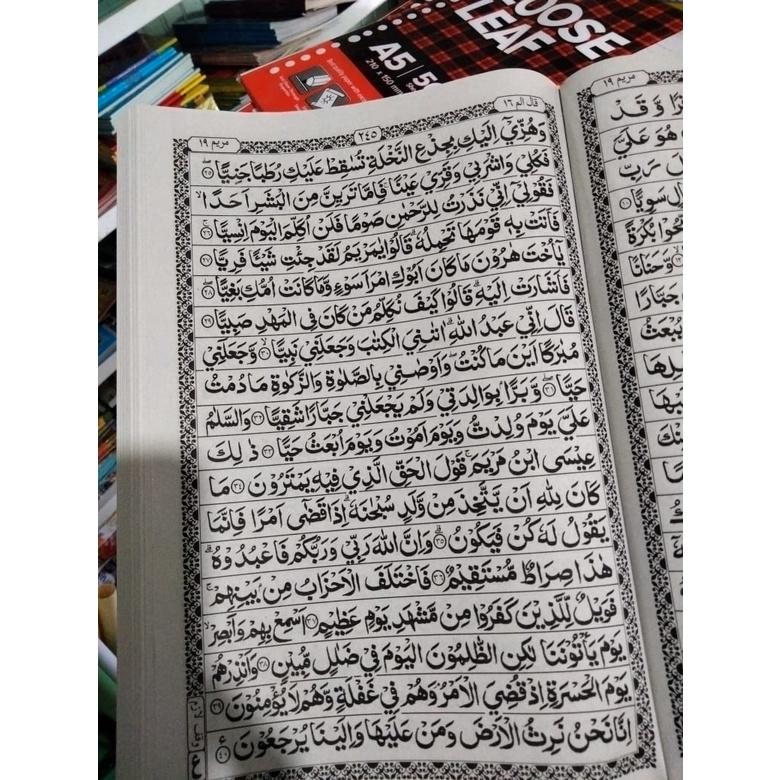 LOOSE
LEAF
A5
210 x 150 mm
مريم ١٩
٢٤٥
قال الم ١٦
وَهُزِّيٓ اِلَيْكِ بِجِذْعِ النَّخْلَةِ تُسٰقِطْ عَلَيْكِ رُطَبًا جَنِيًّا ۖ ٢٥
فَكُلِيْ وَاشْرَبِيْ وَقَرِّيْ عَيْنًا ۚ فَاِمَّا تَرَيِنَّ مِنَ الْبَشَرِ اَحَدًا ۙ
فَقُوْلِيْٓ اِنِّيْ نَذَرْتُ لِلرَّحْمٰنِ صَوْمًا فَلَنْ اُكَلِّمَ الْيَوْمَ اِنْسِيًّا ۚ ٢٦
فَاَتَتْ بِهٖ قَوْمَهَا تَحْمِلُهٗ ۗ قَالُوْا يٰمَرْيَمُ لَقَدْ جِئْتِ شَيْـًٔا فَرِيًّا ٢٧
يٰٓاُخْتَ هٰرُوْنَ مَا كَانَ اَبُوْكِ امْرَاَ سَوْءٍ وَّمَا كَانَتْ اُمُّكِ بَغِيًّا ۖ ٢٨
فَاَشَارَتْ اِلَيْهِ ۗ قَالُوْا كَيْفَ نُكَلِّمُ مَنْ كَانَ فِى الْمَهْدِ صَبِيًّا ٢٩
قَالَ اِنِّيْ عَبْدُ اللّٰهِ ۗ اٰتٰنِيَ الْكِتٰبَ وَجَعَلَنِيْ نَبِيًّا ۙ ٣٠ وَّجَعَلَنِيْ
مُبٰرَكًا اَيْنَ مَا كُنْتُ ۖ وَاَوْصٰنِيْ بِالصَّلٰوةِ وَالزَّكٰوةِ مَا دُمْتُ
حَيًّا ۖ ٣١ وَّبَرًّا بِوَالِدَتِيْ وَلَمْ يَجْعَلْنِيْ جَبَّارًا شَقِيًّا ٣٢ وَالسَّلٰمُ
عَلَيَّ يَوْمَ وُلِدْتُ وَيَوْمَ اَمُوْتُ وَيَوْمَ اُبْعَثُ حَيًّا ٣٣ ذٰلِكَ
عِيْسَى ابْنُ مَرْيَمَ ۚ قَوْلَ الْحَقِّ الَّذِيْ فِيْهِ يَمْتَرُوْنَ ٣٤ مَا
كَانَ لِلّٰهِ اَنْ يَّتَّخِذَ مِنْ وَّلَدٍ سُبْحٰنَهٗ ۗ اِذَا قَضٰٓى اَمْرًا فَاِنَّمَا
يَقُوْلُ لَهٗ كُنْ فَيَكُوْنُ ۗ ٣٥ وَاِنَّ اللّٰهَ رَبِّيْ وَرَبُّكُمْ فَاعْبُدُوْهُ ۗ
هٰذَا صِرَاطٌ مُّسْتَقِيْمٌ ٣٦ فَاخْتَلَفَ الْاَحْزَابُ مِنْۢ بَيْنِهِمْ ۚ
فَوَيْلٌ لِّلَّذِيْنَ كَفَرُوْا مِنْ مَّشْهَدِ يَوْمٍ عَظِيْمٍ ٣٧ اَسْمِعْ بِهِمْ وَاَبْصِرْ ۙ
يَوْمَ يَأْتُوْنَنَا لٰكِنِ الظّٰلِمُوْنَ الْيَوْمَ فِيْ ضَلٰلٍ مُّبِيْنٍ ٣٨ وَاَنْذِرْهُمْ
يَوْمَ الْحَسْرَةِ اِذْ قُضِيَ الْاَمْرُ ۘ وَهُمْ فِيْ غَفْلَةٍ وَّهُمْ لَا يُؤْمِنُوْنَ ٣٩
اِنَّا نَحْنُ نَرِثُ الْاَرْضَ وَمَنْ عَلَيْهَا وَاِلَيْنَا يُرْجَعُوْنَ ࣖ ٤٠
مريم ١٩
رًا وَّقَدْ
هُوَ عَلَيَّ
رَبِّ
سَوِيًّا ١٠
بُكْرَةً
وَّحَنَانًا
جَبَّارًا
يُبْعَثُ